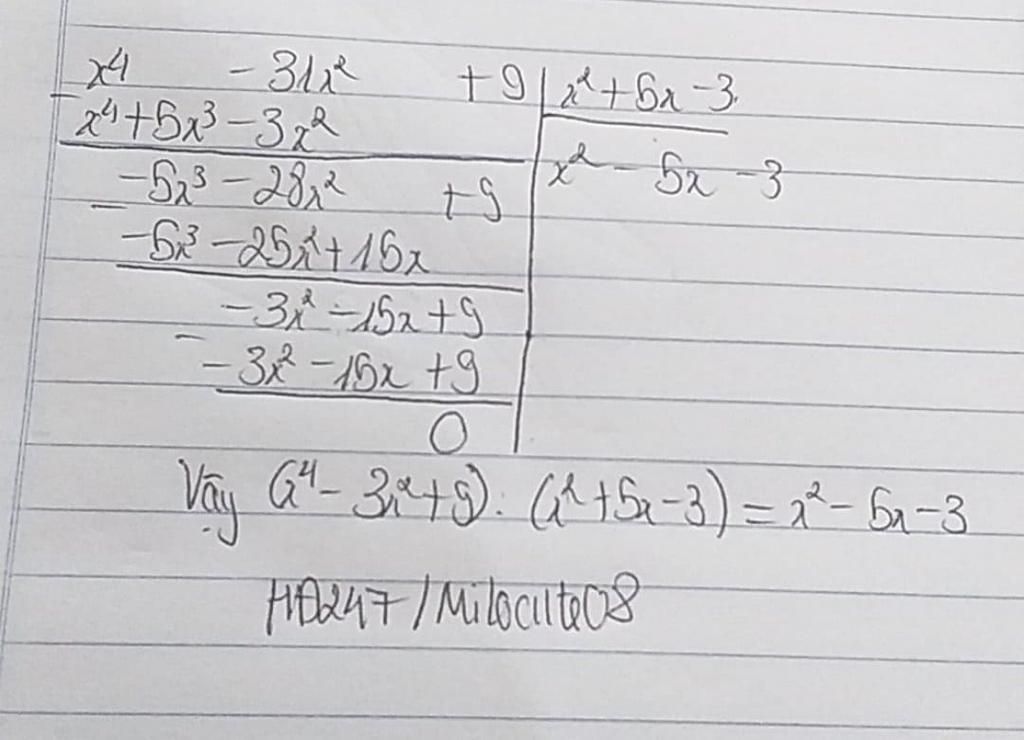 x⁴ - 31x² + 9 | x² + 5x - 3
- x⁴ + 5x³ - 3x²
x² - 5x - 3
-5x³ - 28x² + 9
- -5x³ - 25x² + 15x
-3x² - 15x + 9
- -3x² - 15x + 9
0
Vậy (x⁴ - 3x² + 9) : (x² + 5x - 3) = x² - 5x - 3
HĐ247/Milocute08